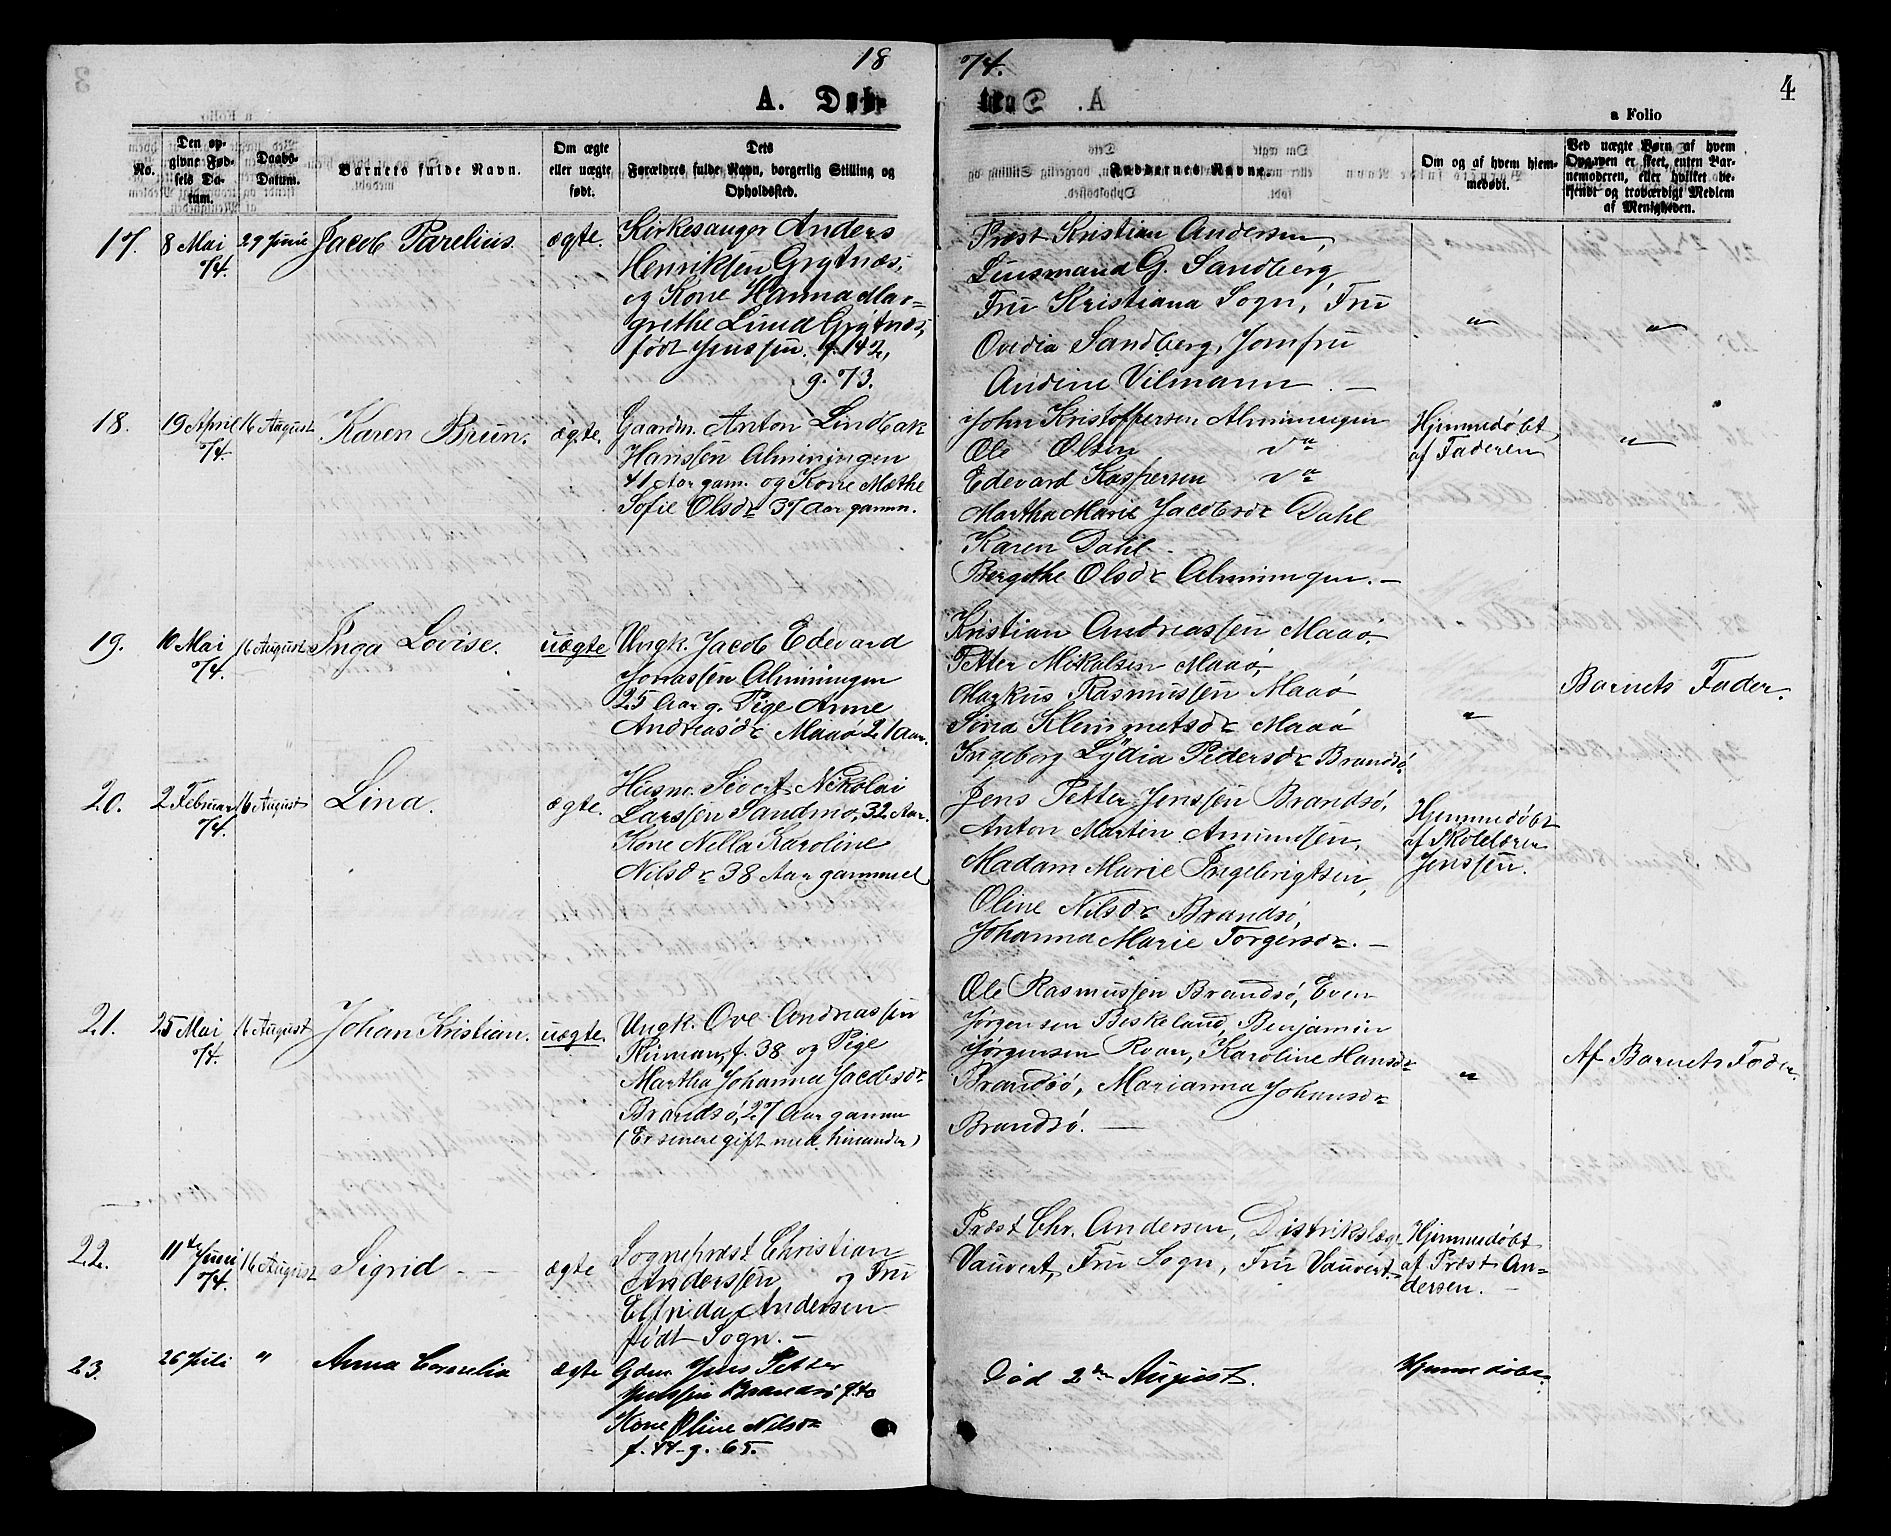 18 74.
4
A. Døbte
a Folio
No.
Den op-
givne Fød-
sels Da-
tum.
Daabs-
Datum.
Barnets fulde Navn.
Om ægte
eller uægte
født.
Dets
Forældres fulde Navn, borgerlig Stilling og
Opholdssted.
Faddernes Navne.
Om og af hvem hjem-
medøbt.
Ved uægte Børn af hvem
Opgaven er skeet, enten Bar-
nemoderen, eller hvilket be-
kjendt og troværdigt Medlem
af Menigheden.
17.
8 Mai
74.
29 Juni
Jacob Parelius.
ægte.
Kirkesanger Anders
Henriksen Grytnæs,
og Kone Hanna Mar-
grethe Lund Grytnæs,
født Jenssen. f. 42,
g. 73.
Præst Kristian Andersen,
Lensmand G. Sandberg,
Fru Kristiana Sogn, Fru
Ovedia Sandberg, Jomfru
Andine Vilmann. —
"
"
18.
19 April
74.
16 August
Karen Brun.
ægte,
Gaardm. Anton Lindbak
Hanssen Almningen
41 Aar gam. og Kone Mæthe
Sofie Olsdr 37 Aar gamm.
John Kristoffersen Almningen
Ole Olsen do
Edevard Kaspersen do
Martha Marie Jacobsdr Dahl
Karen Dahl.
Bergithe Olsdr Almningen. —
Hjemmedøbt
af Faderen
"
19.
10 Mai
74.
16 August
Inga Lovise.
uægte
Ungk. Jacob Edevard
Jonassen Almningen
25 Aar g. Pige Anne
Andreasdr Maaø 21 aar.
Kristian Andreassen Maaø.
Petter Mikalsen Maaø,
Markus Rasmussen Maaø
Sina Klemmetsdr Maaø
Ingeborg Lydia Pedersdr Brandsø
"
Barnets Fader
20.
2 Februar
74.
16 August
Lina.
ægte.
Husm. Sivert Nikolai
Larssen Sandmo, 32 Aar.
Kone Nella Karoline
Nilsdr 38 Aar gammel
Jens Petter Jenssen Brandsø,
Anton Martin Amundsen,
Madam Marie Ingebrigtsen,
Oline Nilsdr Brandsø,
Johanna Marie Torgersdr. —
Hjemmedøbt
af Skolelærer
Jenssen.
21.
25 Mai
74.
16 August
Johan Kristian.
uægte.
Ungk. Ove Andreassen
f. 38 og Pige
Martha Johanna Jacobsdr
Brandsø, 27 Aar gamm
(Er senere gift med hinanden)
Ole Rasmussen Brandsø, Even
Jørgensen Beskeland, Benjamin
Jørgensen Roan, Karoline Hansdr
Brandsø, Marianna Johansdr
Brandsø. —
"
Af Barnets Fader.
22.
11te Juni
74.
16 August
Sigrid —
ægte
Sognepræst Christian
Anderssen og Fru
Elfrida Andersen
født Sogn. —
Præst Chr. Andersen, Distrikslæge
Vauvert, Fru Sogn, Fru Vauvert.
Hjemmedøbt
af Præst An-
dersen. —
23.
26 Juli
"
Anna Cornelia
ægte
Gdm. Jens Petter
Jenssen Brandsø f. 40
Kone Oline Nilsdr
f. 44 g. 65.
Død 2den August.
Hjemmedøbt